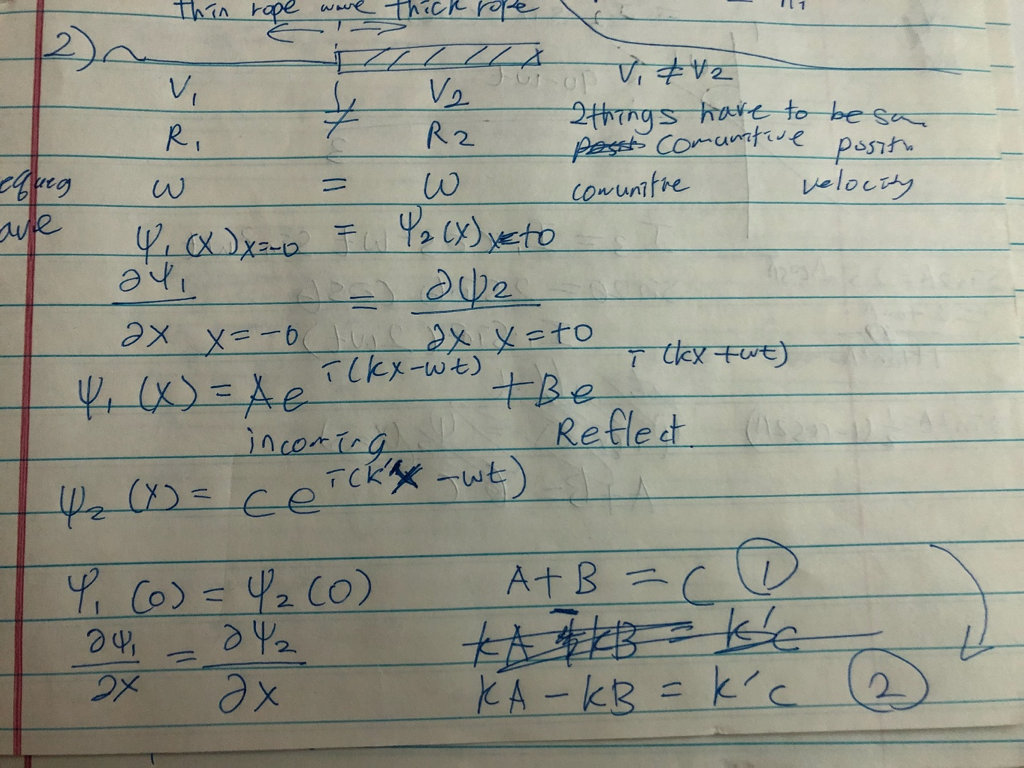 thin rope wave thick rope
2)
V₁ V₂ V₁ ≠ V₂
≠ 2things have to be
R₁ R₂ comunitive
ω = ω comunitive velocity
ψ₁(x) x=-0 = ψ₂(x) x=+0
∂ψ₁/∂x x=-0 = ∂ψ₂/∂x x=+0
ψ₁(x) = Ae^i(kx-wt) + Be^i(kx+wt)
incoming Reflect.
ψ₂(x) = ce^i(k'x-wt)
ψ₁(0) = ψ₂(0) A+B = C ①
∂ψ₁/∂x = ∂ψ₂/∂x kA + kB = k'c
kA - kB = k'c ②